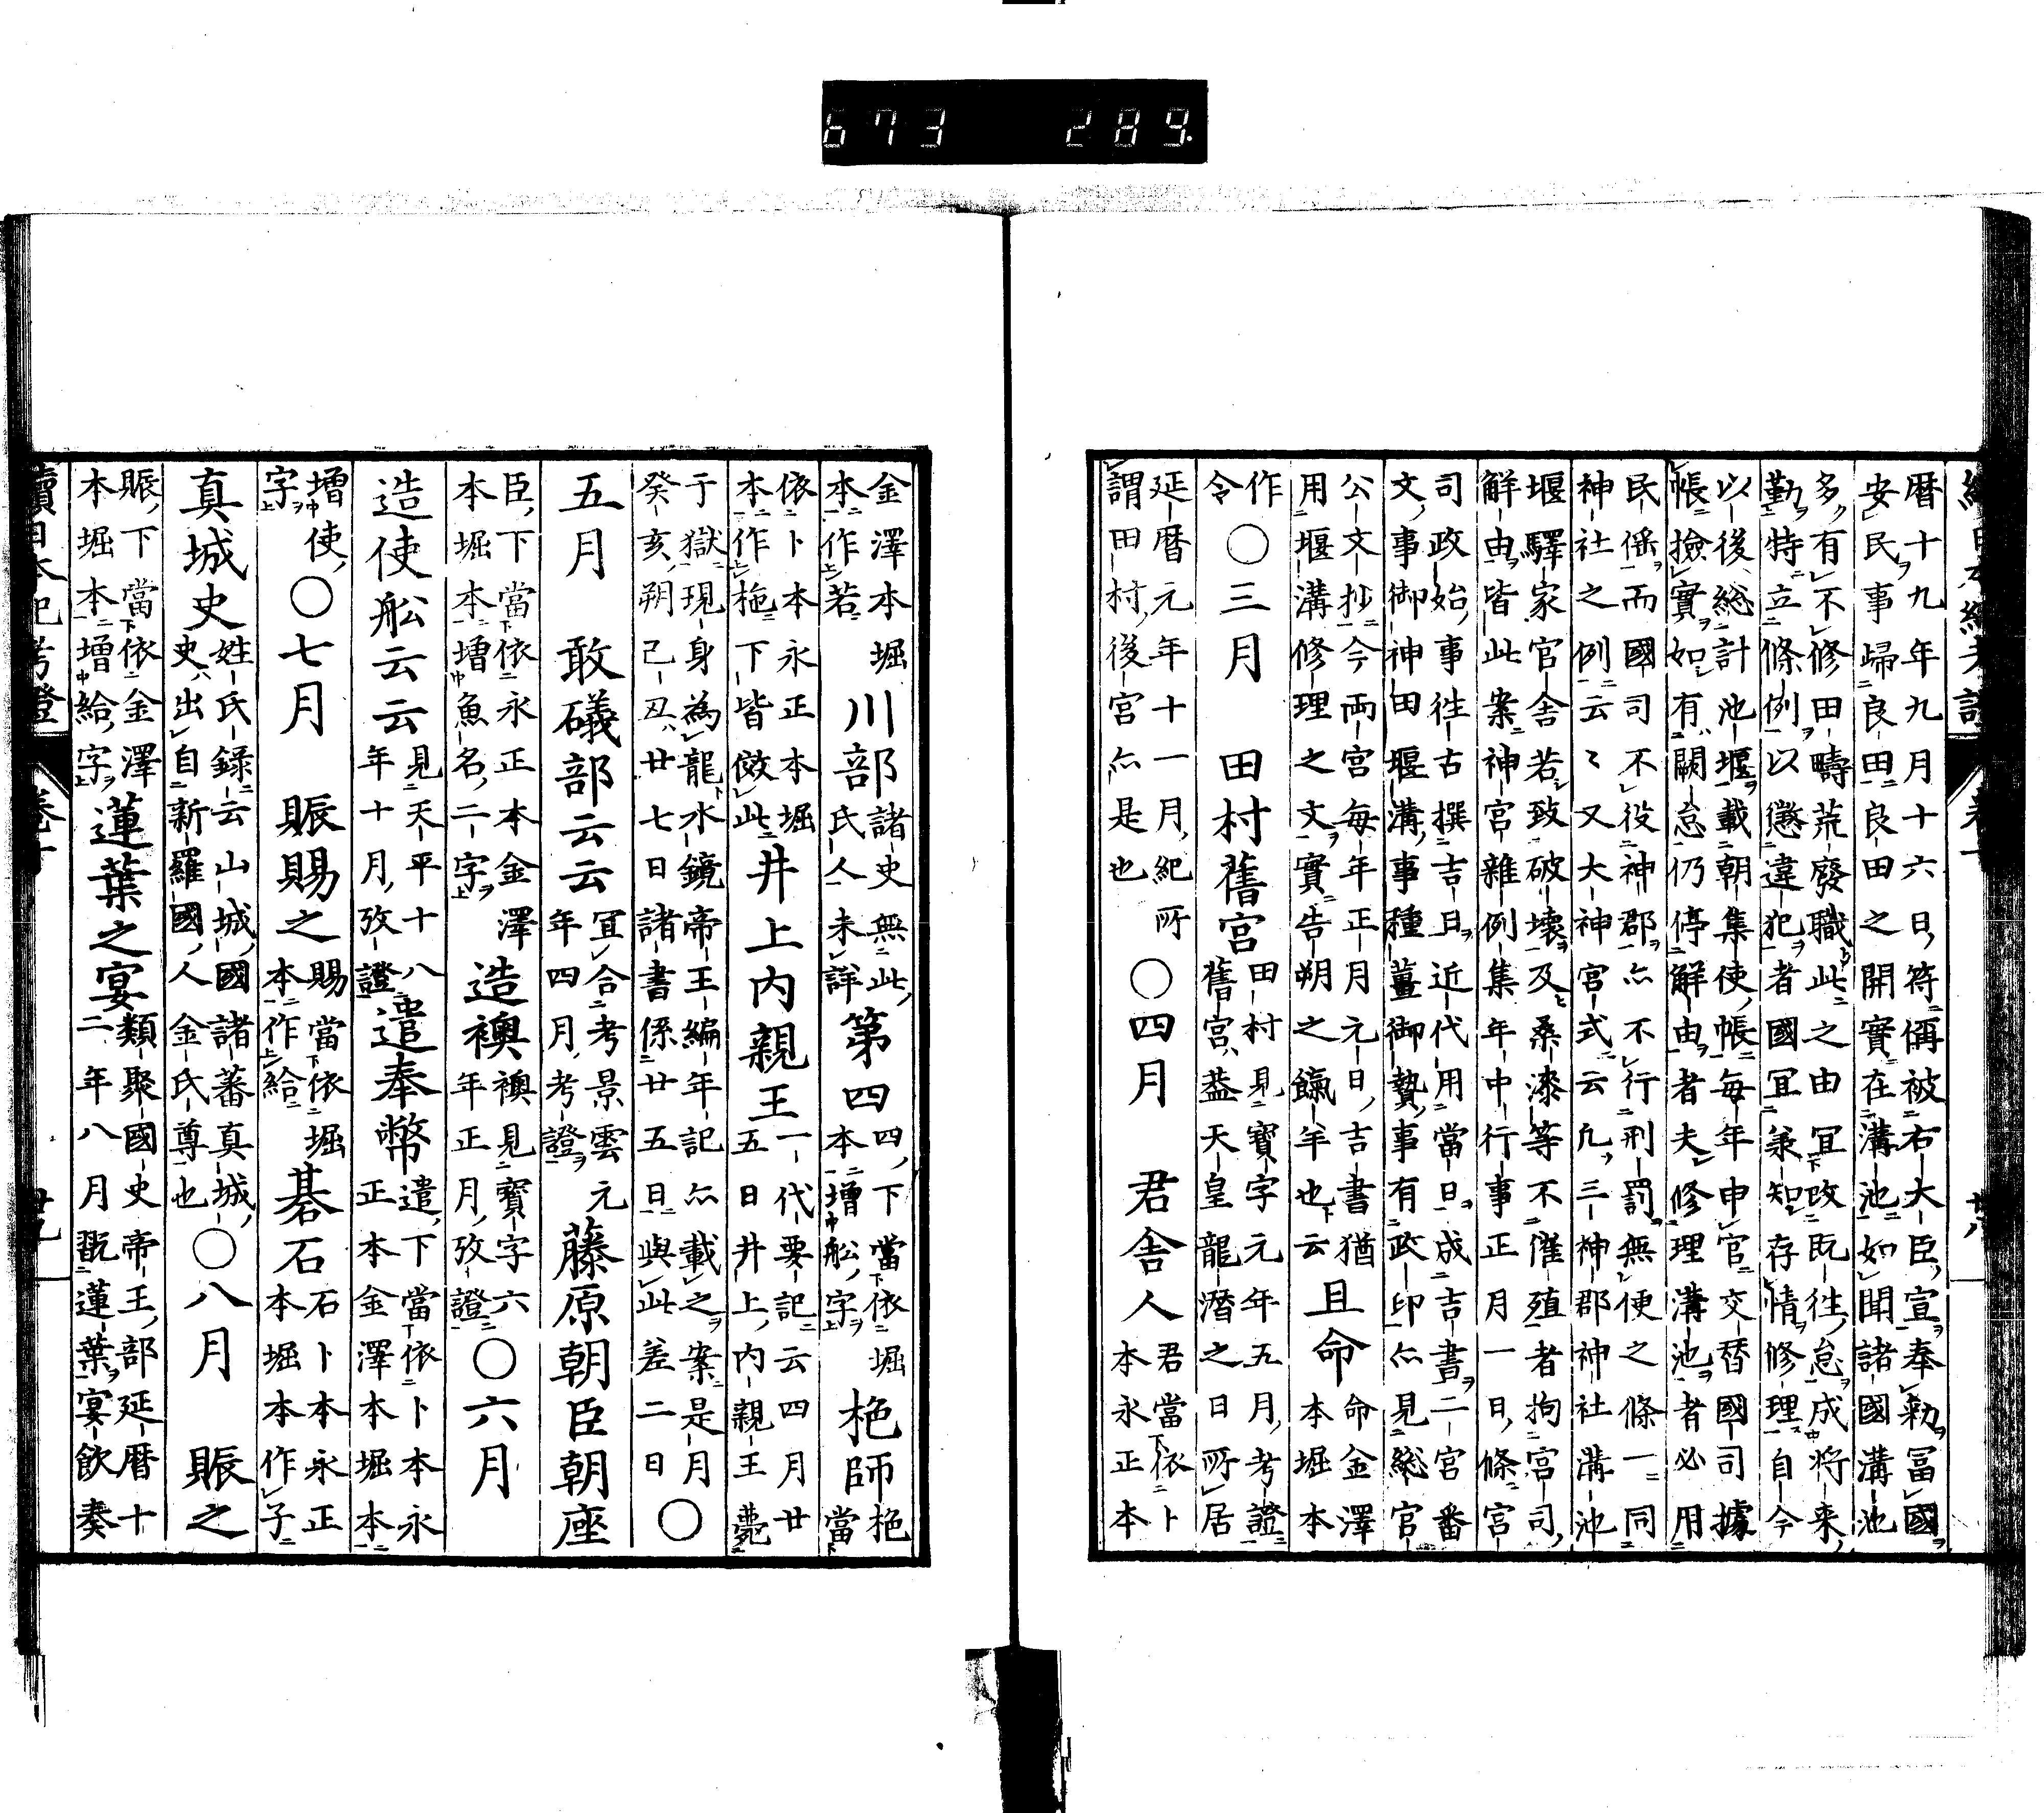 673 289.
暦十九年九月十六日符偁被右大臣宣奉勅冨國
安民事歸良田良田之開實在溝池如聞諸國溝池
多有不修田疇荒廢職此之由冝改既徃怠成將来
勤特立條例以懲違犯者國冝兼知存情修理自今
以後総計池堰載朝集使帳毎年申官交替國司據
帳撿實如有闕怠仍停解由者夫修理溝池者必用
民徭而國司不役神郡亦不行刑罰無便之條一同
神社之例云々又大神宮式云凡三神郡神社溝池
堰驛家官舎若致破壊及桑漆等不催殖者拘宮司
解由皆此案神宮雜例集年中行事正月一日條宮
司政始事徃古撰吉日近代用當日成吉書二宮番
文事御神田堰溝事種薑御贄事有政印亦見総官
公文抄今両宮毎年正月元日吉書猶
用堰溝修理之文實告朔之餼羊也云
且命
命金澤
本堀本
作
令
〇三月
田村舊宮
田村見寶字元年五月考證
舊宮葢天皇龍潜之日所居
延暦元年十一月紀所
謂田村後宮亦是也
〇四月
君舎人
君當依卜
本永正本
金澤本堀
本作若
川部
諸史無此
氏人未詳
第四
四下當依堀
本増舩字
栬師
栬當
依卜本永正本堀
本作栬下皆倣此
井上内親王
一代要記云四月廿
五日井上内親王薨
于獄現身為龍水鏡帝王編年記亦載之案是月
癸亥朔己丑廿七日諸書係廿五日與此差二日
〇
五月
敢礒部云云
冝合考景雲元
年四月考證
藤原朝臣朝座
臣下當依永正本金澤
本堀本増魚名二字
造襖
襖見寳字六
年正月攷證
〇六月
造使舩云云
見天平十八
年十月攷證
遣奉幣
遣下當依卜本永
正本金澤本堀本
増使
字
〇七月
賑賜之
賜當依堀
本作給
碁石
石卜本永正
本堀本作子
真城史
姓氏録云山城國諸蕃真城
史出自新羅國人金氏尊也
〇八月
賑之
賑下當依金澤
本堀本増給字
蓮葉之宴
類聚國史帝王部延暦十
二年八月翫蓮葉宴飲奏
續日本紀考證